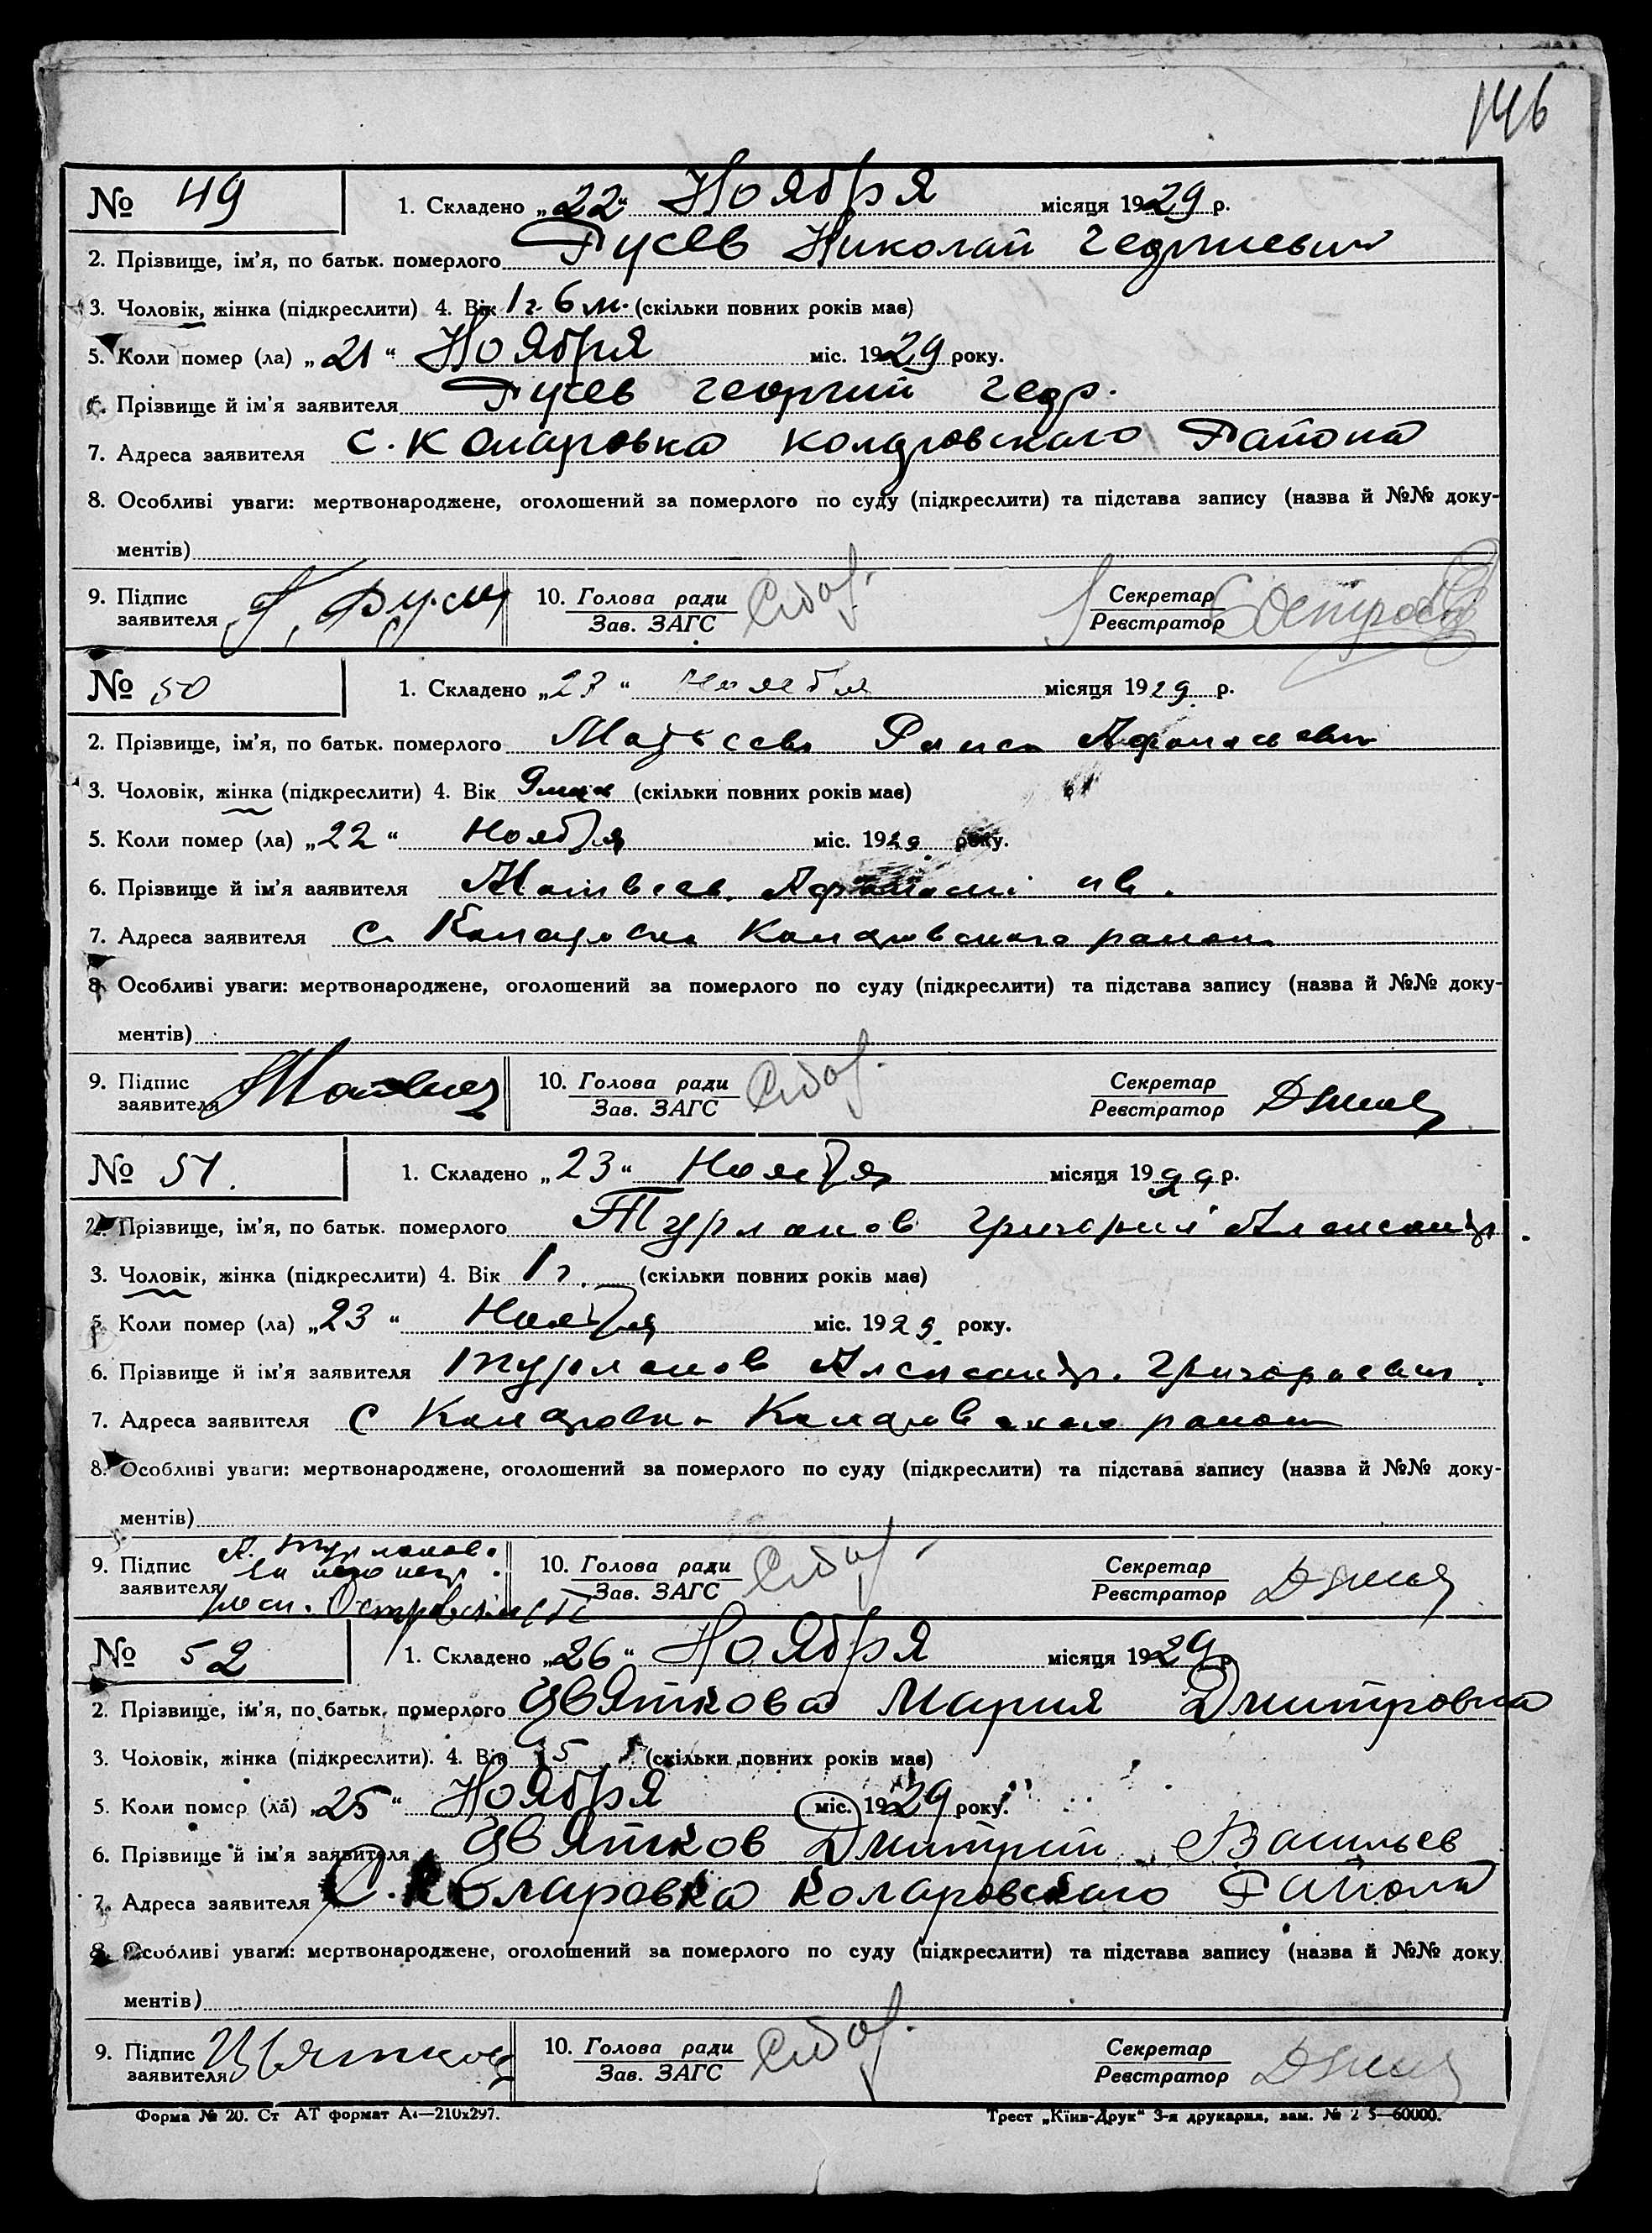 146
№ 49 1. Складено „22“ Ноября місяця 1929 р.
2. Прізвище, ім'я, по батьк. померлого Гусев Николай
3. Чоловік, жінка (підкреслити) 4. Вік 1 г. 6 м. (скільки повних років має)
5. Коли помер (ла) „21“ Ноября міс. 1929 року.
6. Прізвище й ім'я заявителя Гусев Георгий
7. Адреса заявителя с. Коларовка Коларовскаго Района
8. Особливі уваги: мертвонароджене, оголошений за померлого по суду (підкреслити) та підстава запису (назва й №№ доку-
ментів)
9. Підпис заявителя 10. Голова ради Зав. ЗАГС Секретар Реєстратор
№ 50 1. Складено „23“ Ноября місяця 1929 р.
2. Прізвище, ім'я, по батьк. померлого Раиса
3. Чоловік, жінка (підкреслити) 4. Вік (скільки повних років має)
5. Коли помер (ла) „22“ Ноября міс. 1929 року.
6. Прізвище й ім'я аявителя Матвеев Афанасий ив.
7. Адреса заявителя с. Коларовка Коларовского района
8. Особливі уваги: мертвонароджене, оголошений за померлого по суду (підкреслити) та підстава запису (назва й №№ доку-
ментів)
9. Підпис заявителя Матвеев 10. Голова ради Зав. ЗАГС Секретар Реєстратор
№ 51. 1. Складено „23“ Ноября місяця 1929 р.
2. Прізвище, ім'я, по батьк. померлого Турланов Григорий Александр.
3. Чоловік, жінка (підкреслити) 4. Вік 1 г. (скільки повних років має)
5. Коли помер (ла) „23“ Ноября міс. 1929 року.
6. Прізвище й ім'я заявителя Турланов Александр. Григорьевич.
7. Адреса заявителя с Коларовка Коларовского района
8. Особливі уваги: мертвонароджене, оголошений за померлого по суду (підкреслити) та підстава запису (назва й №№ доку-
ментів)
9. Підпис заявителя А. Турланов. 10. Голова ради Зав. ЗАГС Секретар Реєстратор
№ 52 1. Складено „26“ Ноября місяця 1929 р.
2. Прізвище, ім'я, по батьк. померлого Цвяткова Мария Дмитровна
3. Чоловік, жінка (підкреслити). 4. Вік (скільки повних років має)
5. Коли помер (ла) „25“ Ноября міс. 1929 року.
6. Прізвище й ім'я заявителя Цвятков Дмитрий Васильев
7. Адреса заявителя С. Коларовка Коларовскаго Района
8. Особливі уваги: мертвонароджене, оголошений за померлого по суду (підкреслити) та підстава запису (назва й №№ доку
ментів)
9. Підпис заявителя Цвятков 10. Голова ради Зав. ЗАГС Секретар Реєстратор
Форма № 20. Ст АТ формат А4—210х297. Трест „Київ-Друк“ 3-я друкарня, зам. №